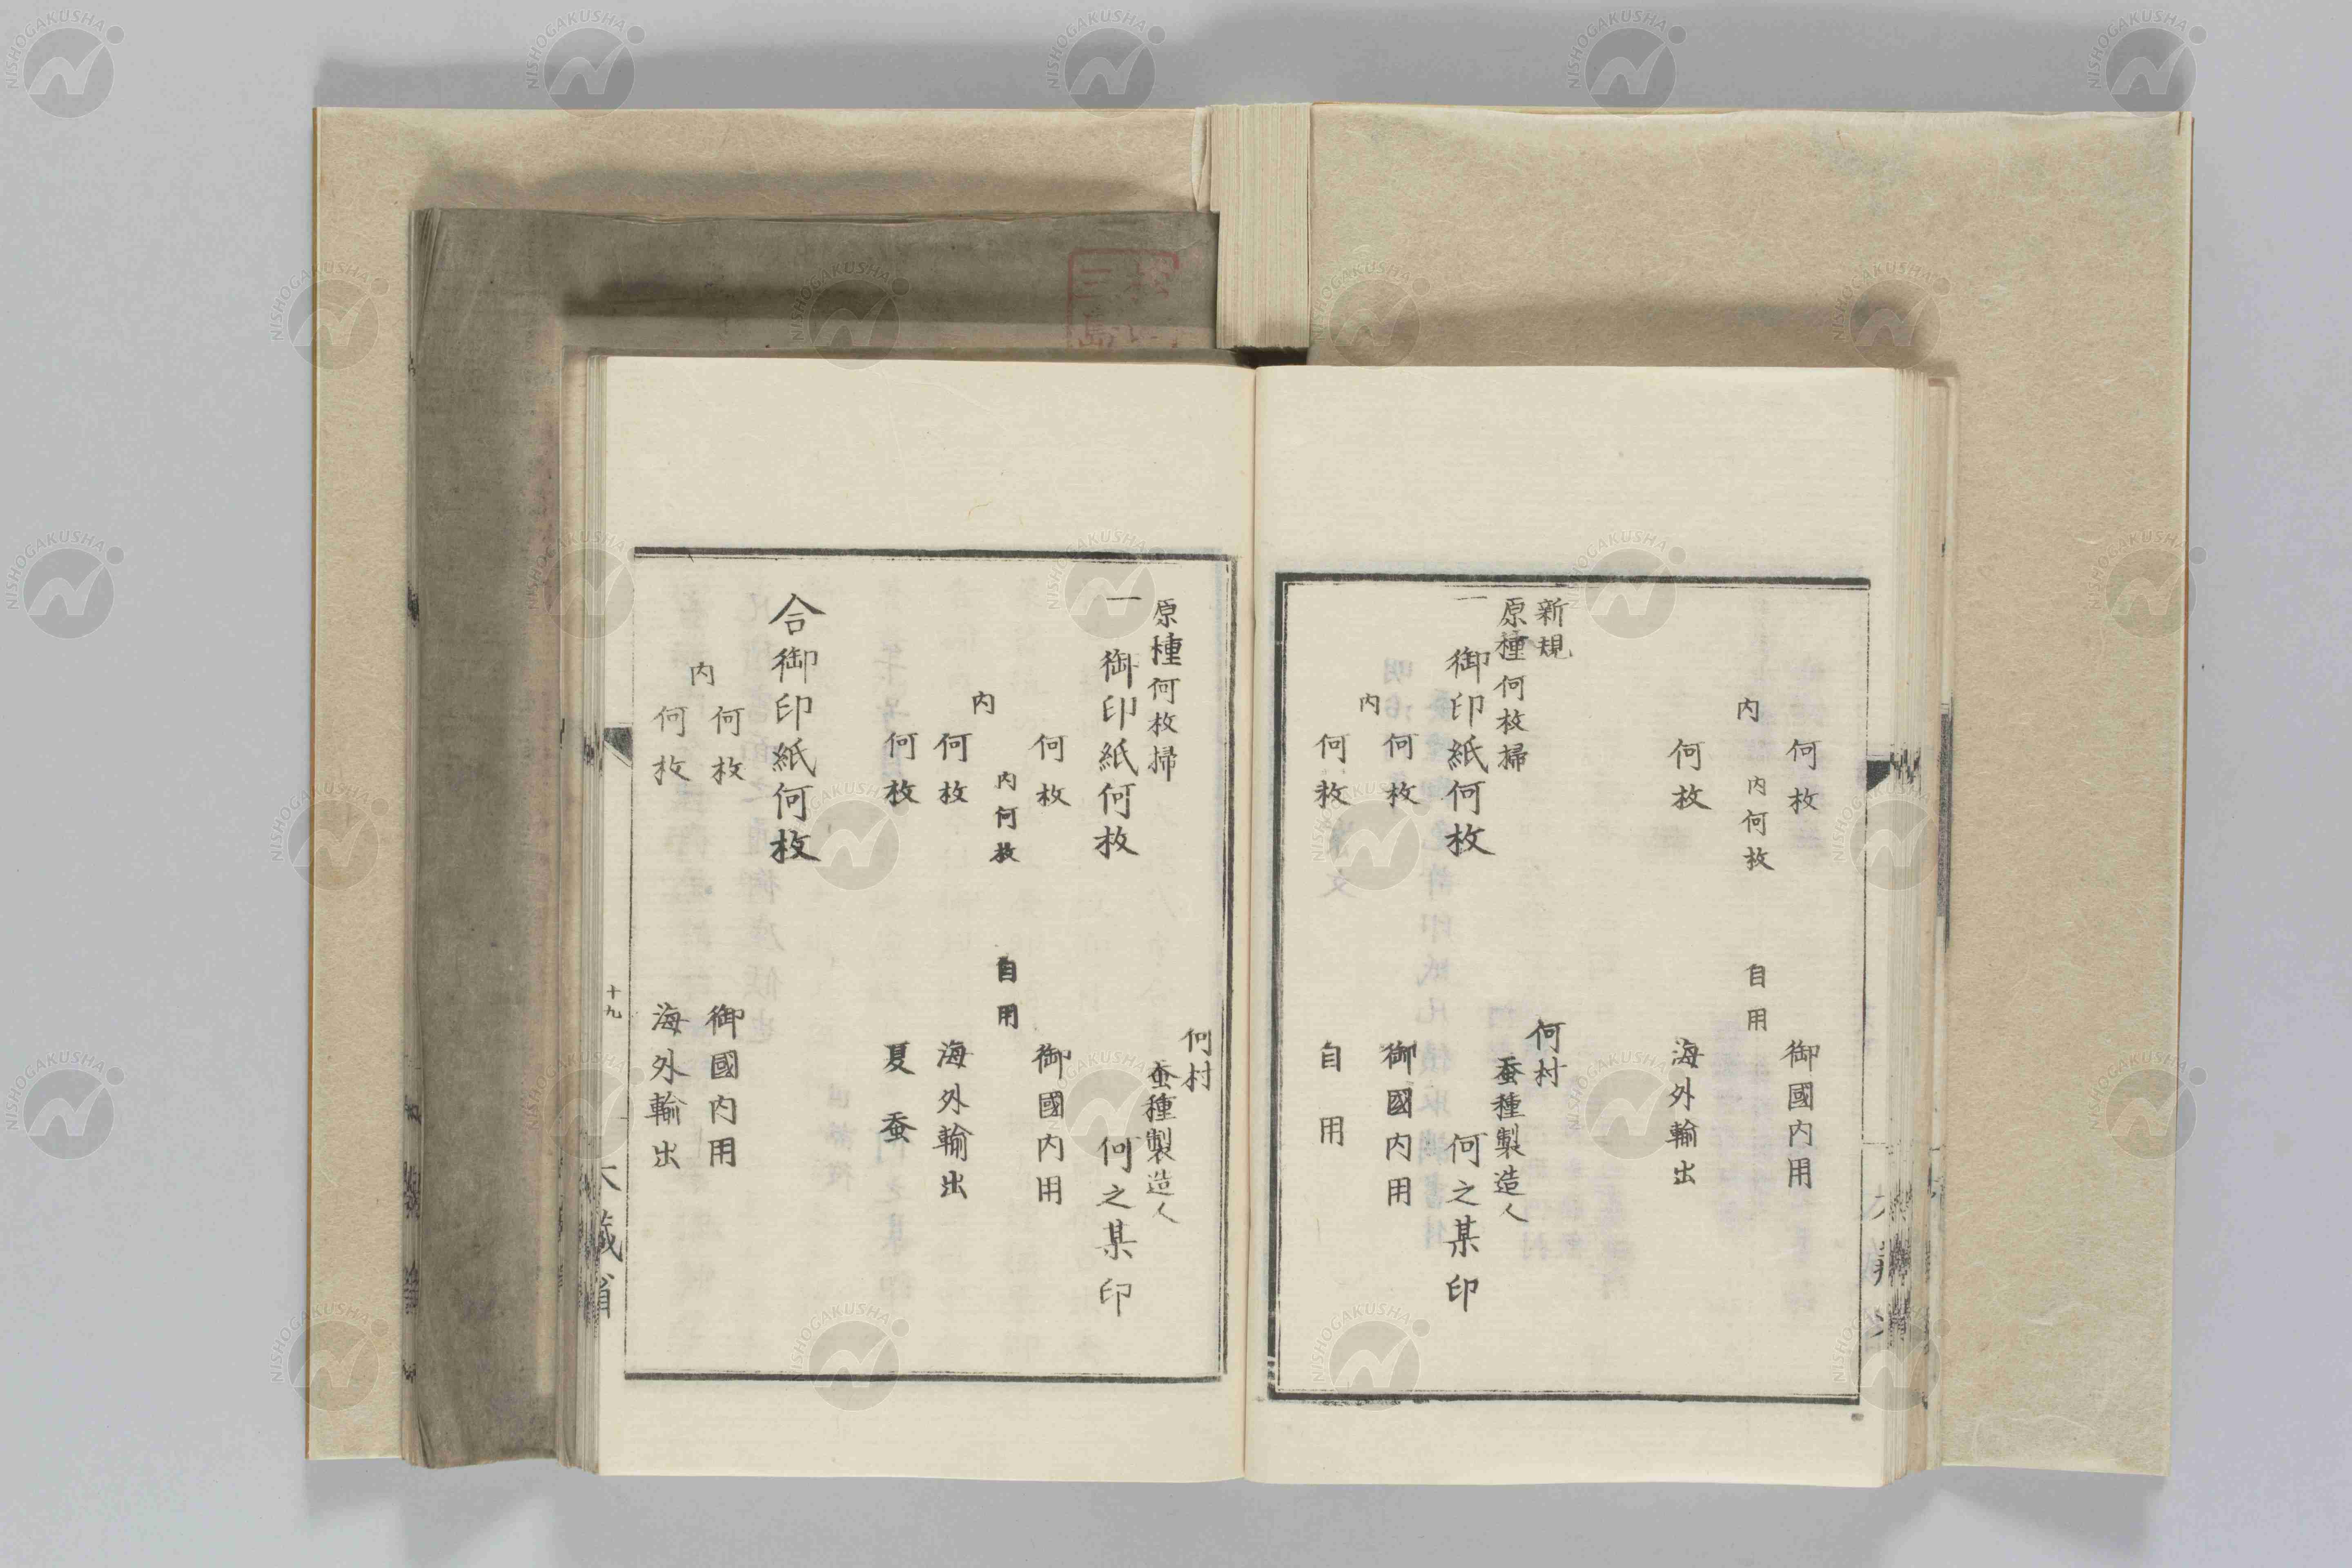 何枚 御國内用
内
内何枚 自用
何枚 海外輸出
新規
原種何枚掃
何村
蚕種製造人
一 御印紙何枚 何之某印
内
何枚 御國内用
何枚 自用
原種何枚掃
何村
蚕種製造人
一 御印紙何枚 何之某印
何枚 御國内用
内
内何枚 自用
何枚 海外輸出
何枚 夏蚕
合御印紙何枚
内
何枚 御國内用
何枚 海外輸出
十九
大藏省
NISHOGAKUSHA